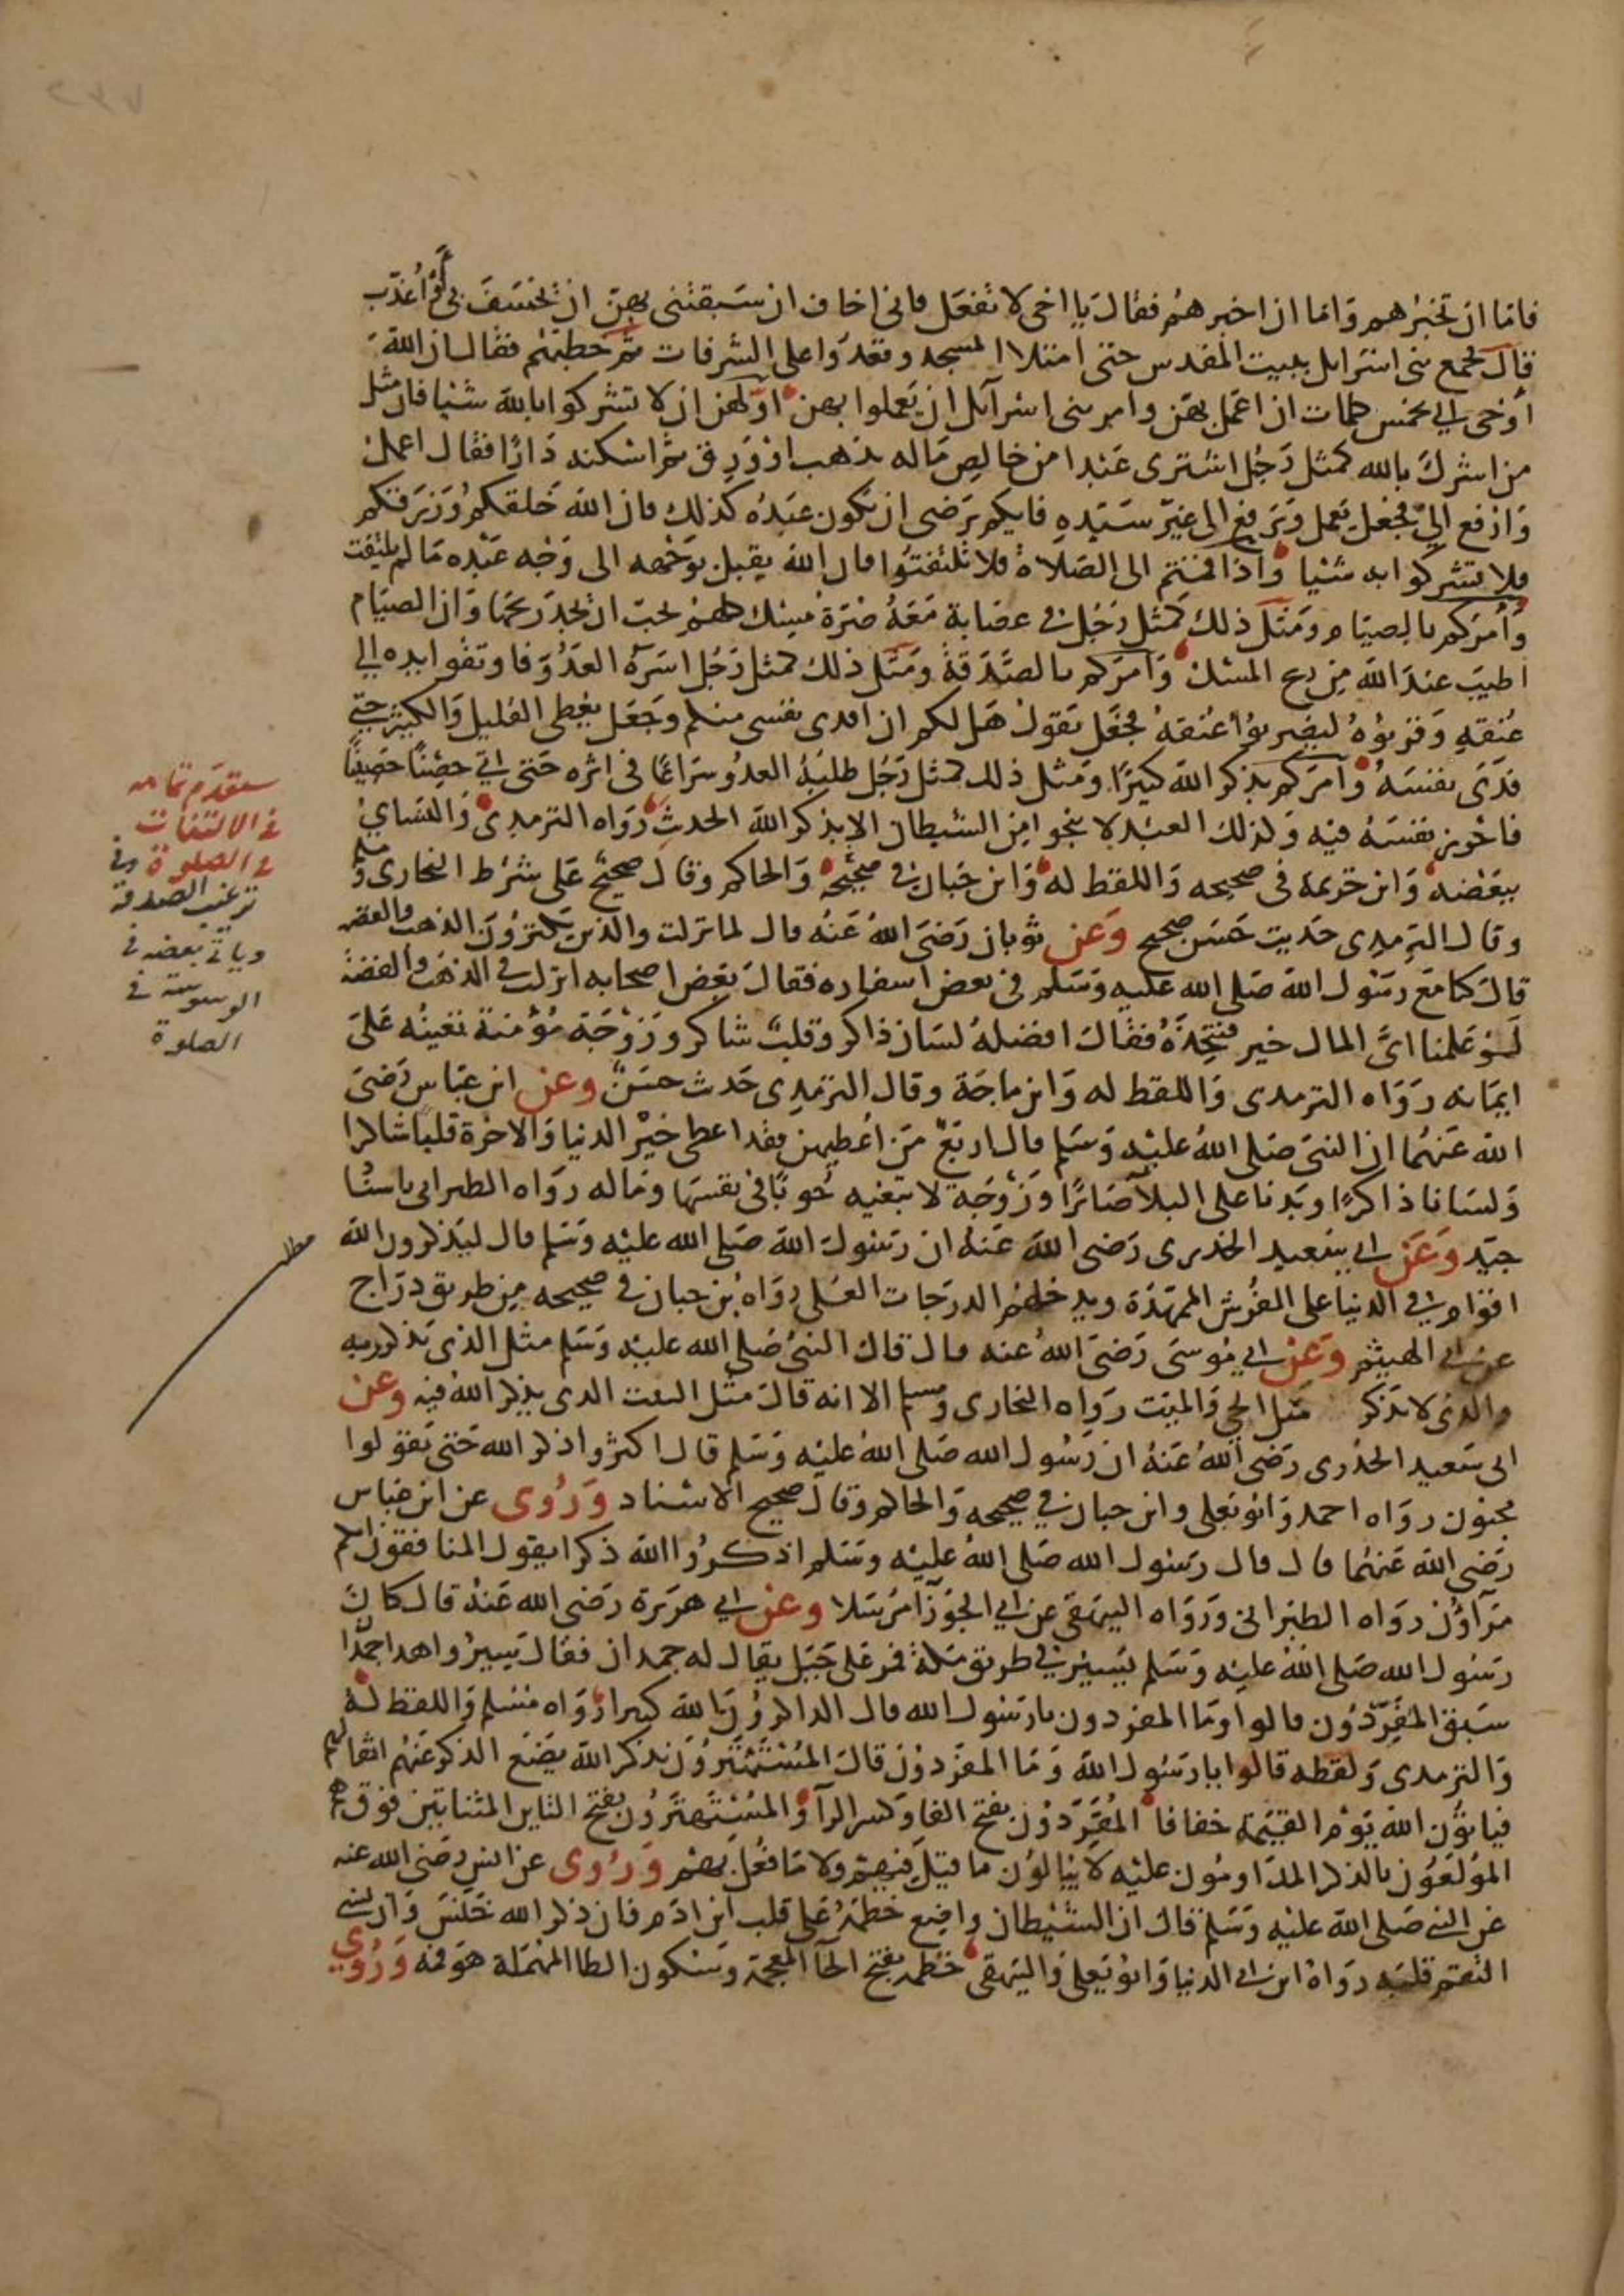 فاما ان تخبرهم واما ان اخبرهم فقال يا اخي لا تفعل فاني اخاف ان سبقتني بهن ان يخسف بي او اعذب
قال فجمع بني اسرائل ببيت المقدس حتى امتلا المسجد وقعدوا على الشرفات ثم خطبهم فقال ان الله
أوحى الي بخمس كلمات ان اعمل بهن وامر بني اسرآئل ان يعملوا بهن اولهن ان لا تشركوا بالله شيا فان مثل
من اشرك بالله كمثل رجل اشترى عبدا من خالص ماله بذهب او ورق ثم اسكنه دارا فقال اعمل
وارفع الي فجعل يعمل ويرفع الى غير سيده فايكم يرضى ان يكون عبده كذلك فان الله خلقكم ورزقكم
فلا تشركوا به شيا واذا قمتم الى الصلاة فلا تلتفتوا فان الله يقبل بوجهه الى وجه عبده ما لم يلتفت
وأمركم بالصيام ومثل ذلك كمثل رجل في عصابة معه صرة مسك كلهم يحب ان يجد ريحها وان الصيام
اطيب عند الله من ريح المسك وآمركم بالصدقة ومثل ذلك كمثل رجل اسره العدو فاوثقوا يده الي
عنقه وقربوه ليضربوا عنقه فجعل يقول هل لكم ان افدى نفسي منكم وجعل يعطى القليل والكثير حتى
فدى نفسه وآمركم بذكر الله كثيرًا ومثل ذلك كمثل رجل طلبه العدو سراعًا في اثره حتى اتى حصنًا حصينًا
فاحرز نفسه فيه وكذلك العبد لا ينجوا من الشيطان الا بذكر الله الحديث رواه الترمدى والنساي
ببعضه وابن خزيمة في صحيحه واللفظ له وابن حبان في صحيحه والحاكم وقال صحيح على شرط البخارى ومسلم
وقال الترمدى حديث حسن صحيح وعن ثوبان رضي الله عنه قال لما نزلت والذين يكنزون الذهب والفضه
قال كنا مع رسول الله صلى الله عليه وسلم في بعض اسفاره فقال بعض اصحابه انزلت في الذهب والفضة
لو علمنا اى المال خير فنتخذه فقال افضله لسان ذاكر وقلب شاكر وزوجة مؤمنة تعينه على
ايمانه رواه الترمدى واللفظ له وابن ماجة وقال الترمدى حدث حسن وعن ابن عباس رضي
الله عنهما ان النبي صلى الله عليه وسلم قال اربع من اعطيهن فقد اعطى خير الدنيا والاخرة قلبا شاكرا
ولسانا ذاكرًا وبدنا على البلآ صابرًا وزوجة لا تبغيه حوبًا في نفسها وماله رواه الطبراني باسناد
جيد وعن ابي سعيد الخدرى رضي الله عنه ان رسول الله صلى الله عليه وسلم قال ليذكرون الله
اقوام في الدنيا على الفرش الممهدة ويدخلهم الدرجات العلى رواه بن حبان في صحيحه من طريق دراج
عن ابي الهيثم وعن ابي موسى رضي الله عنه قال قال النبي صلى الله عليه وسلم مثل الذى يذكر ربه
والذى لا يذكر مثل الحي والميت رواه البخارى ومسلم الا انه قال مثل البيت الدى يذكر الله فيه وعن
ابي سعيد الخدرى رضي الله عنه ان رسول الله صلى الله عليه وسلم قال اكثروا ذكر الله حتى يقولوا
مجنون رواه احمد وابو يعلى وابن حبان في صحيحه والحاكم وقال صحيح الاسناد وروى عن ابن عباس
رضي الله عنهما قال قال رسول الله صلى الله عليه وسلم اذكروا الله ذكرا يقول المنافقون انكم
مرآؤن رواه الطبراني ورواه البيهقى عن ابي الجوزآ مرسلا وعن ابي هريرة رضي الله عنه قال كان
رسول الله صلى الله عليه وسلم يسير في طريق مكة فمر على جبل يقال له جمدان فقال سيروا هدا جمدان
سبق المفردون قالوا وما المفردون يارسول الله قال الداكرون الله كثيرا رواه مسلم واللفظ له
والترمدى ولفظه قالوا يارسول الله وما المفردون قال المستهترون بذكر الله يضع الذكر عنهم اثقالهم
فياتون الله يوم القيمة خفافا المفردون بفتح الفا وكسر الرآ والمستهترون بفتح التاين المثناتين فوق هم
المولعون بالذكر المداومون عليه لا يبالون ما قيل فيهم ولا ما فعل بهم وروى عن انس رضي الله عنه
عن النبي صلى الله عليه وسلم قال ان الشيطان واضع خطمه على قلب ابن ادم فان ذكر الله خنس وان نسي
التقم قلبه رواه ابن ابي الدنيا وابو يعلى والبيهقى خطمه بفتح الخآ المعجمة وسكون الطا المهملة هو فمه وروي
ستقدم تمامه
في الالتفات
في الصلوة وفي
ترغيب الصدقة
وياتي بعضه في
الوسوسة في
الصلوة
مطلب